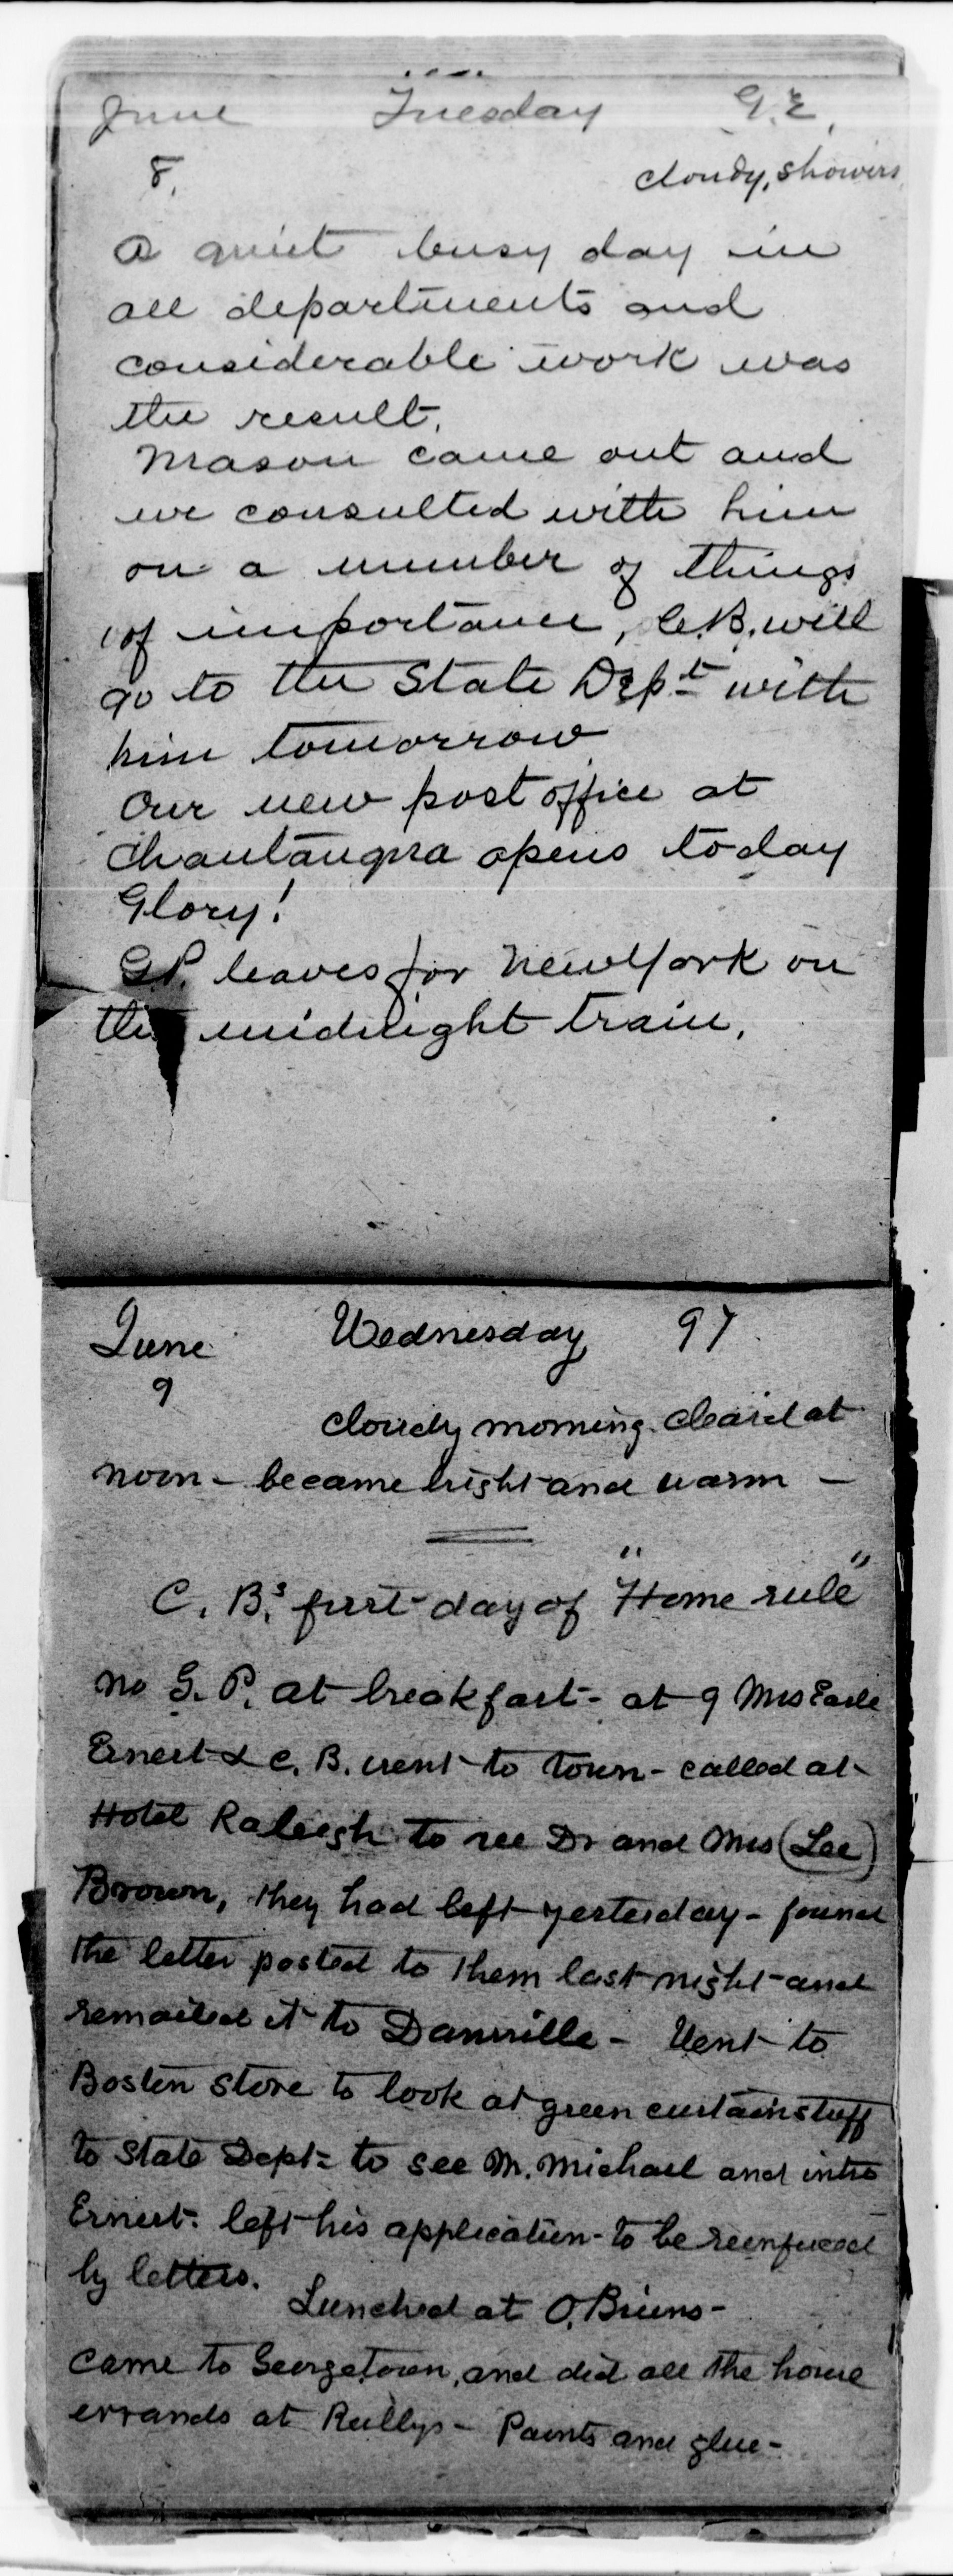 June Tuesday G.E.
8. cloudy, showers
A quiet busy day in
all departments and
considerable work was
the result.
Mason came out and
we consulted with him
on a number of things
of importance, C.B. will
go to the State Dept with
him tomorrow
Our new post office at
Chautauqua opens today
Glory!
G.P. leaves for New York on
the midnight train.
June Wednesday 97
9
cloudy morning. Cleard at
noon - became bright and warm -
C. B's first day of "Home rule"
no G. P. at breakfast - at 9 Mrs Earle
Ernest & C. B. went to town - called at
Hotel Raleigh to see Dr and Mrs (Lee)
Brown, they had left yesterday - found
the letter posted to them last night and
remailed it to Danville - Went to
Boston store to look at green curtain stuff
to State Dept - to see M. Michael and intro
Ernest. left his application - to be reenforced
by letters.
Lunched at O,Briens -
came to Georgetown, and did all the house
errands at Reillys - Paints and glue -